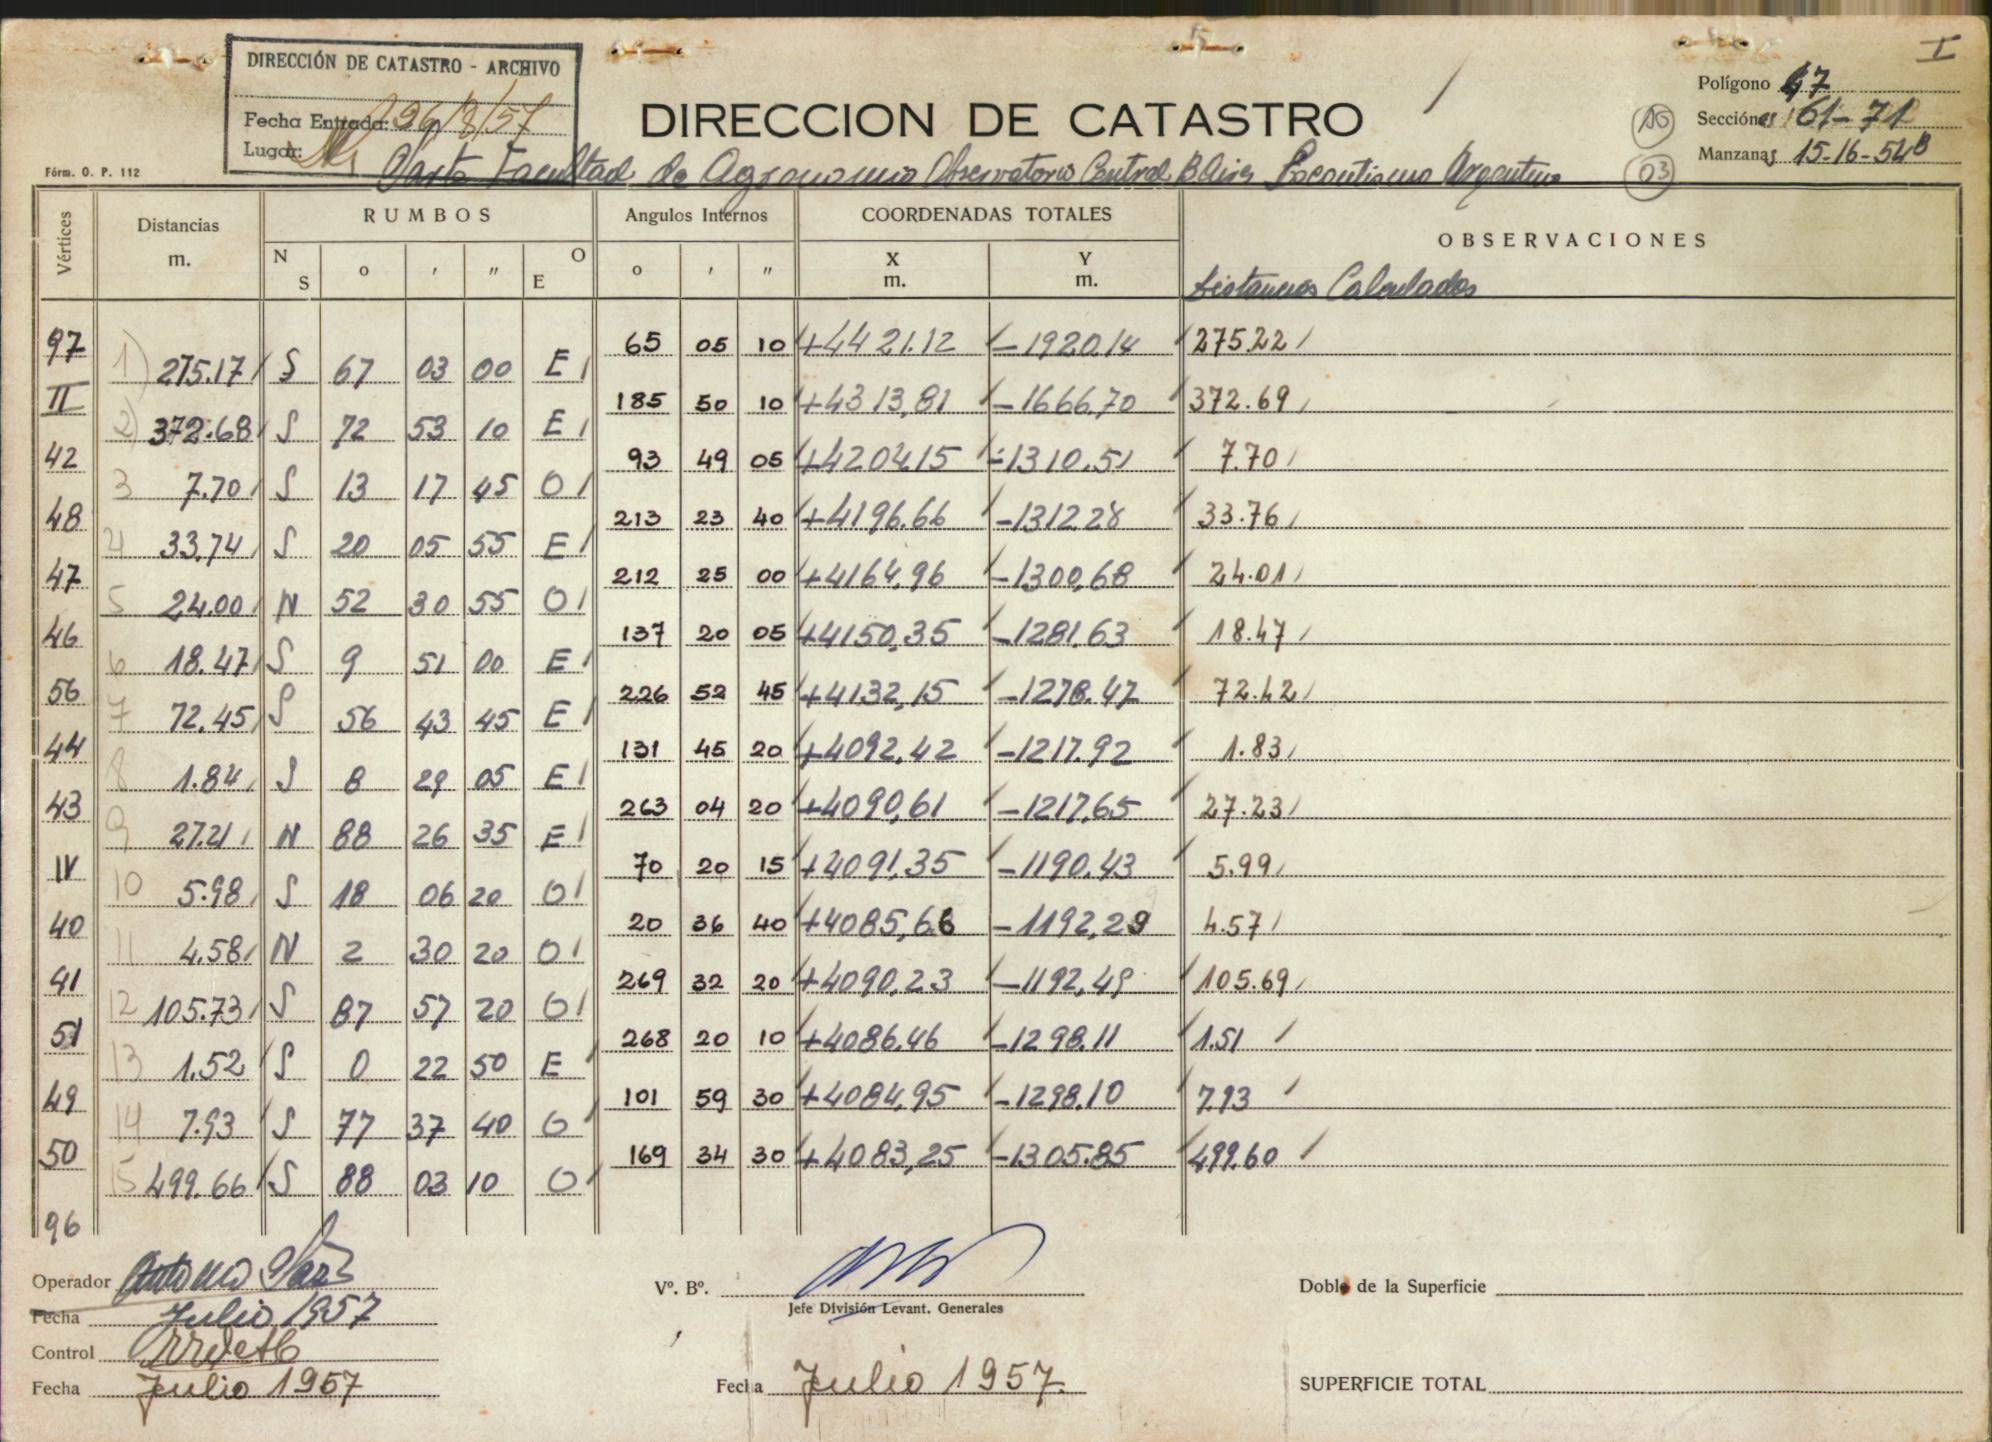 I
DIRECCIÓN DE CATASTRO - ARCHIVO
Fecha Entrada: 26/8/57
Lugar:
DIRECCION DE CATASTRO
Polígono 47
Secciónes 61-71
Manzanas 15-16-54B
16
03
Fórm. O. P. 112
Parte Facultad de Agronomia Observatorio Central B Aires Escautismo Argentino
Vértices Distancias m. RUMBOS Angulos Internos COORDENADAS TOTALES OBSERVACIONES
N S o ' " O E o ' " X m. Y m.
Distancias Calculadas
97 65 05 10 +4421.12 -1920.14 275.22
1) 275.17 S 67 03 00 E
II 185 50 10 +4313,81 -1666,70 372.69
2) 372.68 S 72 53 10 E
42 93 49 05 +4204,15 -1310.51 7.70
3 7.70 S 13 17 45 O
48 213 23 40 +4196.66 -1312.28 33.76
4 33,74 S 20 05 55 E
47 212 25 00 +4164,96 -1300,68 24.01
5 24.00 N 52 30 55 O
46 137 20 05 +4150,35 -1281.63 18.47
6 18.47 S 9 51 00 E
56 226 52 45 +4132,15 -1278.47 72.42
7 72.45 S 56 43 45 E
44 131 45 20 +4092,42 -1217.92 1.83
8 1.84 S 8 29 05 E
43 263 04 20 +4090,61 -1217,65 27.23
9 27.21 N 88 26 35 E
IV 70 20 15 +4091,35 -1190.43 5.99
10 5.98 S 18 06 20 O
40 20 36 40 +4085,66 -1192,29 4.57
11 4.58 N 2 30 20 O
41 269 32 20 +4090,23 -1192,49 105.69
12 105.73 S 87 57 20 O
51 268 20 10 +4086.46 -1298.11 1.51
13 1.52 S 0 22 50 E
49 101 59 30 +4084,95 -1298.10 7.93
14 7.93 S 77 37 40 O
50 169 34 30 +4083,25 -1305.85 499.60
15 499.66 S 88 03 10 O
96
Operador Antonio
Vº. Bº.
Doble de la Superficie
Jefe División Levant. Generales
Fecha Julio 1957
Control
Fecha Julio 1957
Fecha Julio 1957.
SUPERFICIE TOTAL